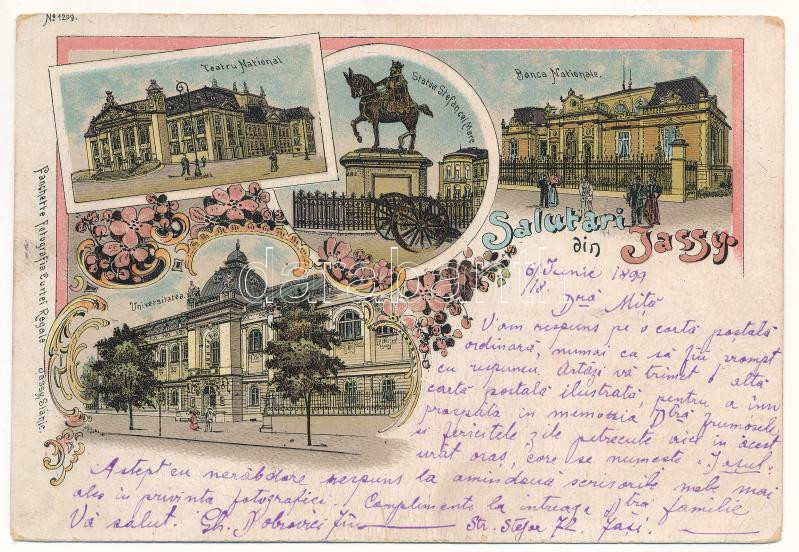 No 1209.
Teatru National
Statua Stefan cel Mare
Banca Nationale.
Salutari
din Jassy.
Universitatea.
Panchette Fotografia Curtei Regale Jassy, Slănic.
darabanth
6/18. Iunie 1899
Drǎ Mită
V'am respuns pe o cartă poștală
ordinară, numai ca să fiu prompt
cu respunsu. Astăzi vă trimet o altă
cartă postală ilustrată, pentru a înv
prospăta in memoria Dtră frumosele
si fericitele zile petrecute aici in acest
urât oraș, care se numește "Iașul"
Astept cu nerăbdare respuns la amîndouă scrisorile mele mai
ales in privința fotografiei. Complimente la intreaga Dtră familie
Vă salut. Gh. Dobrovici fiu Str. Ștefan 72. Iași.